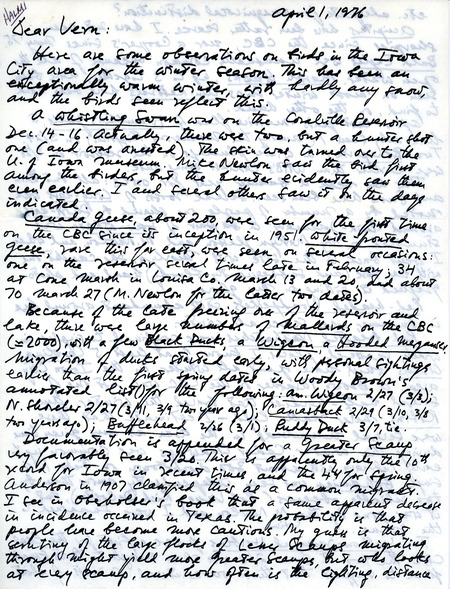 HALMI
April 1, 1976
Dear Vern:
Here are some observations on birds in the Iowa
City area for the winter season. This has been an
exceptionally warm winter, with hardly any snow,
and the birds seen reflect this.
A Whistling Swan was on the Coralville Reservoir
Dec. 14-16. Actually, there were two, but a hunter shot
one (and was arrested). The skin was turned over to the
U. of Iowa museum. Mike Newlon saw the bird first
among the birders, but the hunter evidently saw them
even earlier. I and several others saw it on the days
indicated.
Canada Geese, about 200, were seen for the first time
on the CBC since its inception in 1951. White fronted
geese, rare this far east, were seen on several occasions:
one on the reservoir several times late in February; 34
at Cone Marsh in Louisa Co. March 13 and 20, and about
70 March 27 (M. Newlon for the latter two dates).
Because of the late freezing over of the reservoir and
lake, there were large numbers of Mallards on the CBC
(≈2000), with a few Black Ducks, a Wigeon, a Hooded Merganser.
Migration of ducks started early, with personal sightings
earlier than the first spring dates in Woody Brown's
annotated list() for the following: Am. Wigeon 2/27 (3/2);
N. Shoveler 2/27 (3/11, 3/9 two years ago); Canvasback 2/29 (3/10, 3/8
two years ago); Bufflehead 2/26 (3/17); Ruddy Duck 3/7, tie.
Documentation is appended for a Greater Scaup
very favorably seen 3/20. This is apparently only the 10th
record for Iowa in recent times, and the 4th for spring.
Anderson in 1907 claimed this as a common migrant.
I see in Oberholser's book that a same apparent decrease
in incidence occurred in Texas. The probability is that
people have become more cautious. My guess is that
scrutiny of the large flocks of Lesser Scaups migrating
through might yield more Greater Scaups, but who looks
at every scaup, and how often is the lighting, distance